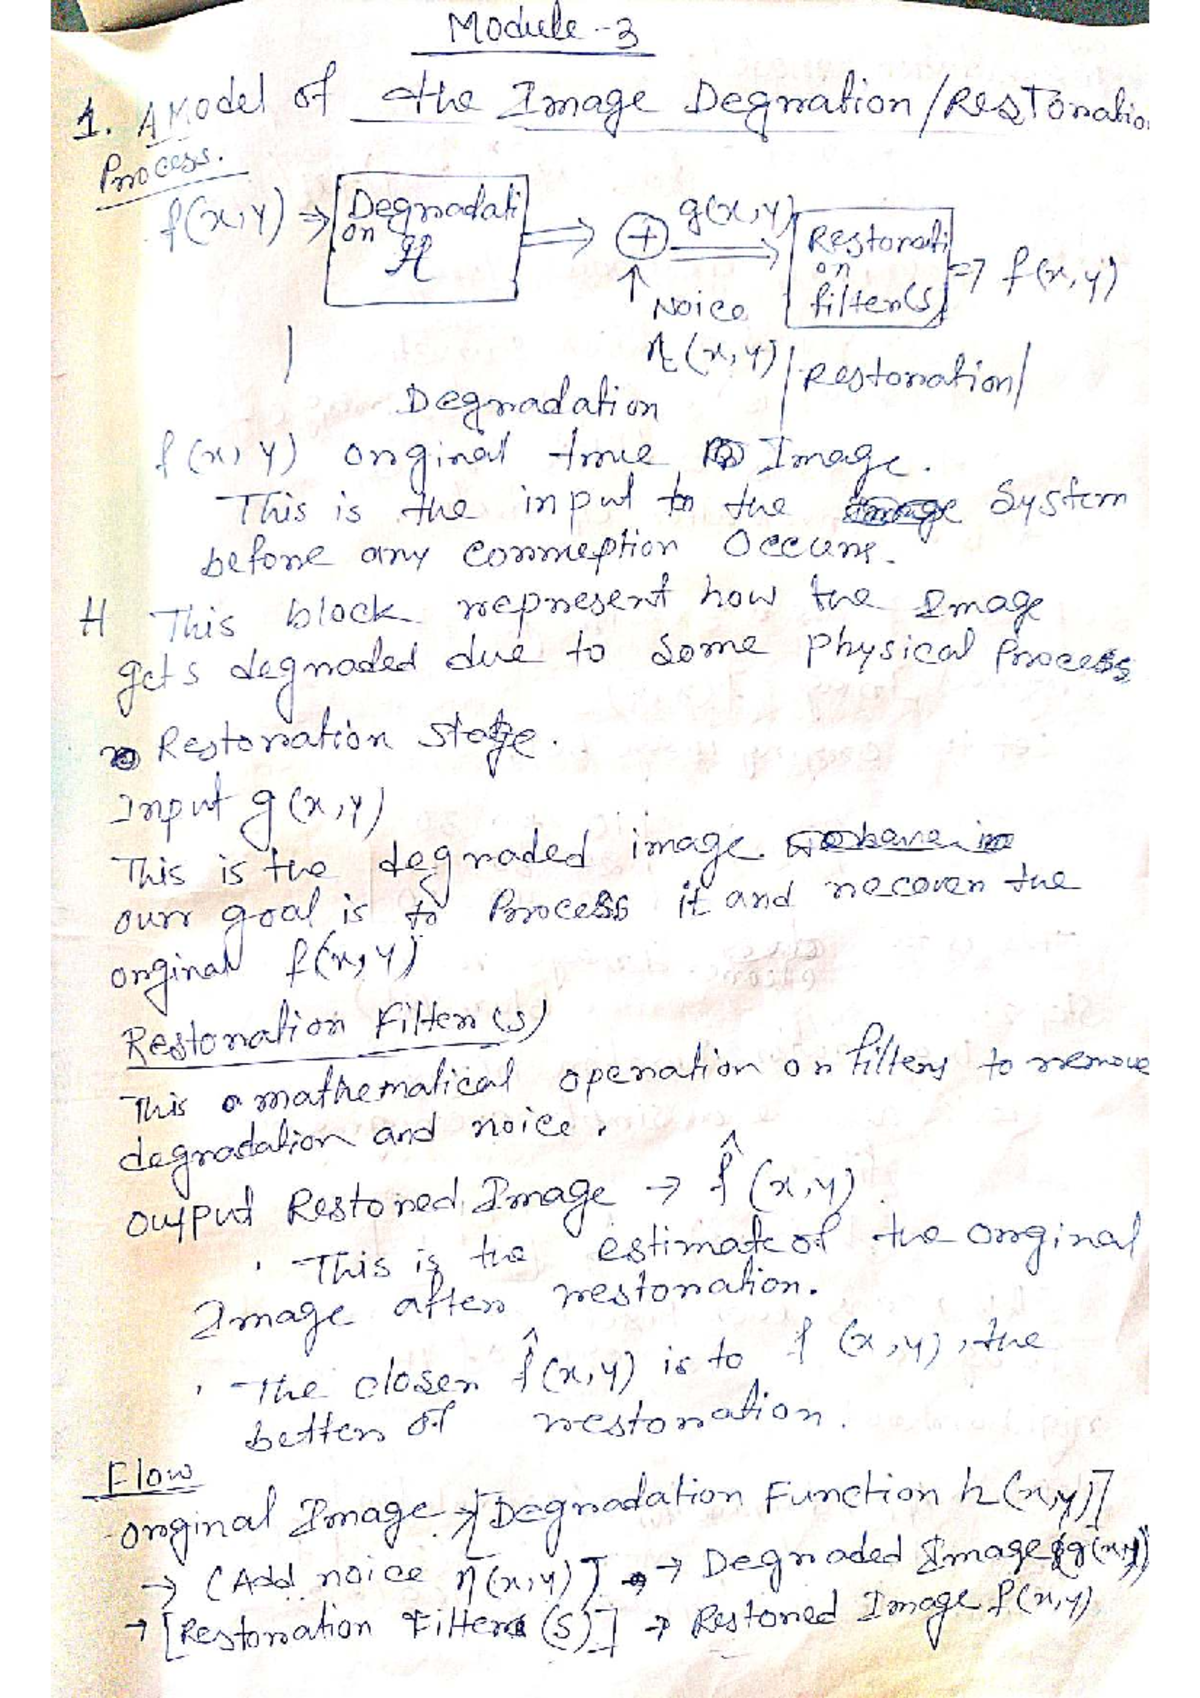 Module-3
1. A Model of the Image Degration/Restoratio
Process.
f(x,y) → Degradati on H ⇒ + g(x,y) ⇒ Restorati on filter(s) ⇒ f(x,y)
↑ Noice η(x,y)
Degradation | Restoration |
f(x, y) orginal true Image.
This is the input to the System
before any corrruption occurs.
H This block represent how the Image
gets degraded due to some physical Process
Restoration stage.
Input g(x,y)
This is the degraded image
ourr goal is to Process it and recover the
orginal f(x,y)
Restoration Filter(s)
This a mathematical operation on filters to remove
degradation and noice.
Output Restored Image → f̂(x,y).
. This is the estimate of the orginal
Image after restoration.
. The closer f̂(x,y) is to f (x,y), the
better of restoration.
Flow
original Image → [Degradation Function h(x,y)]
→ (Add noice η(x,y)] → Degraded Image (g(x,y))
→ [Restoration Filter (s)] → Restored Image f(x,y)